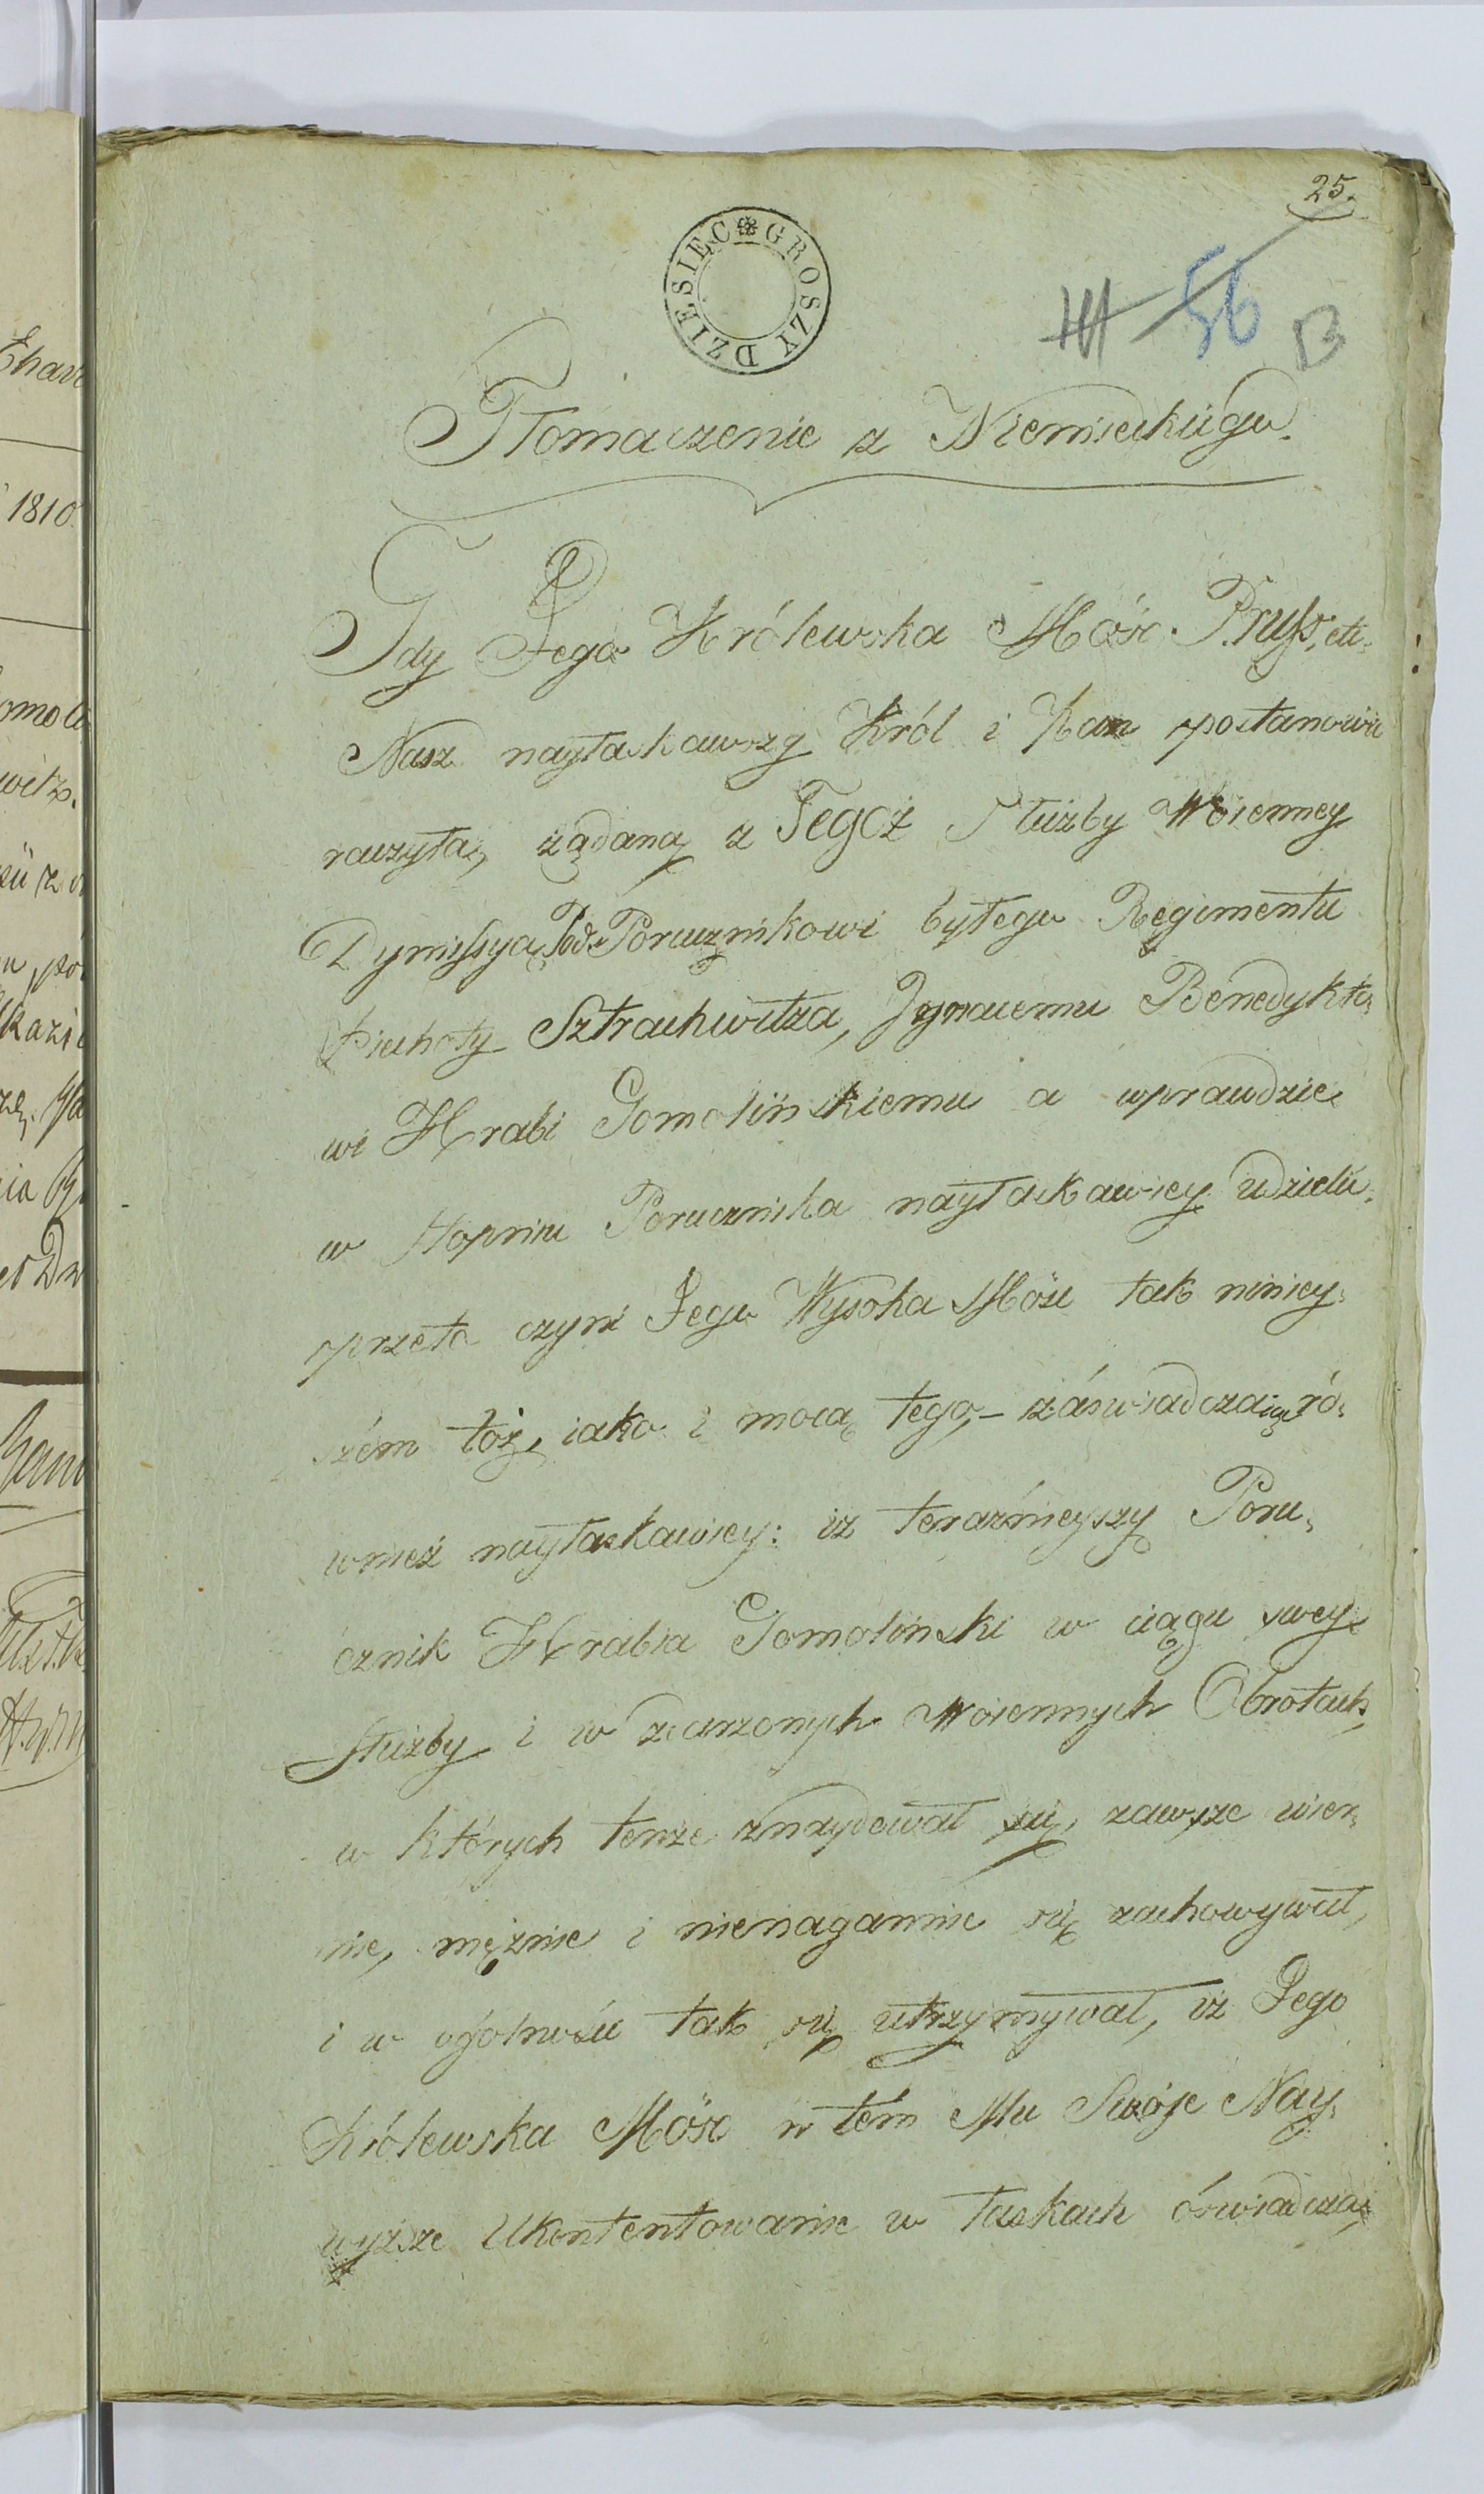 25.
DZIESIEC GROSZY
56
B
Tłomaczenie z Niemieckiego.
Gdy Jego Królewska Mość Prusk. etc.
Nasz nayłaskawszy Król i Pan postanowić
raczyła, żądaną z Tegoż Służby Woienney
Dymissyą Pod-Porucznikowi byłego Regimentu
Piechoty Sztrachwitza, Ignacemu Benedykto-
wi Hrabi Gomolińskiemu a wprawdzie
w stopniu Porucznika nayłaskawiey udzielić,
przeto czyni Jego Wysoka Mość tak niniey-
szém toż, iako i mocą tego, – zaświadczaiąc ró-
wnież nayłaskawiey: iż teraźnieyszy Poru-
cznik Hrabia Gomoliński w ciągu swey
służby i w zdarzonych Woiennych Obrotach,
w których tenże znaydował się, zawsze wier-
nie, mężnie i nienagannie się zachowywał,
i w ogólności tak się utrzymywał, iż Jego
Królewska Mość w tém Mu Swóje Nay-
wyższe Ukontentowanie w łaskach óświadcza,
Char
1810
witz.